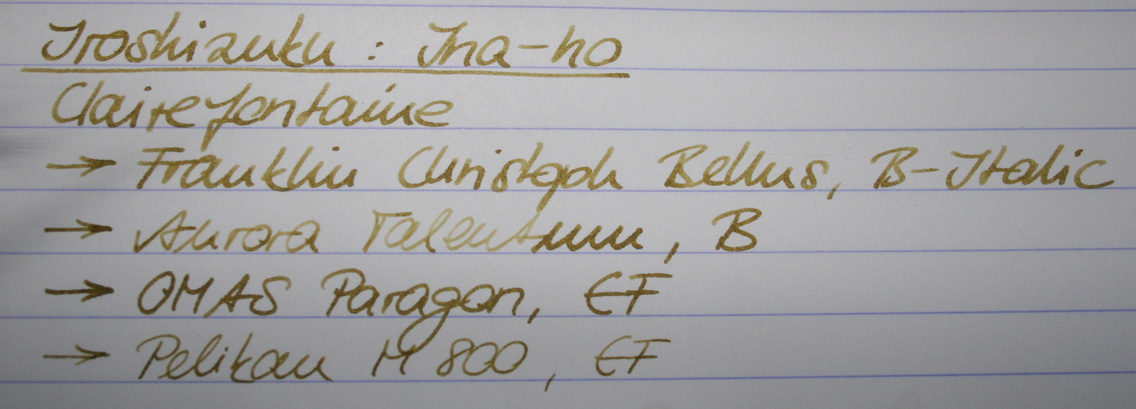 Iroshizuku : Ina-ho
Clairefontaine
→ Franklin Christoph Bellus, B-Italic
→ Aurora Talentum, B
→ OMAS Paragon, EF
→ Pelikan M 800, EF